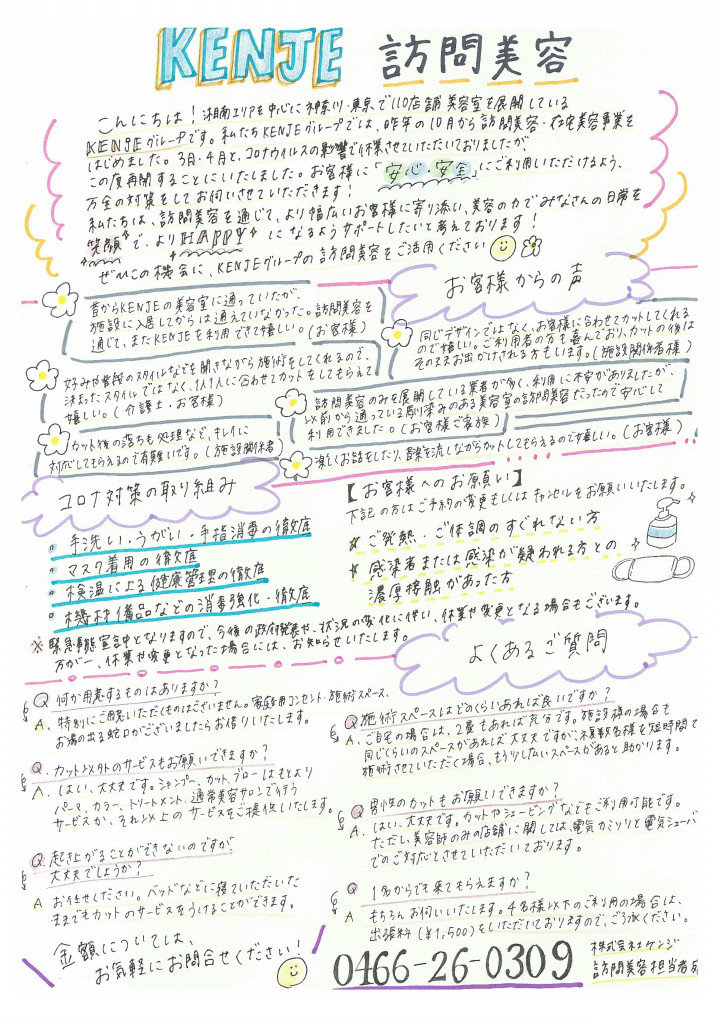 KENJE 訪問美容
こんにちは！湘南エリアを中心に神奈川・東京で110店舗美容室を展開している
KENJEグループです。私たちKENJEグループでは、昨年の10月から訪問美容・在宅美容事業を
はじめました。3月・4月と、コロナウイルスの影響で休業させていただいておりましたが
この度再開することにいたしました。お客様に「安心・安全」にご利用いただけるよう、
万全の対策をしてお伺いさせていただきます！
私たちは、訪問美容を通じて、より幅広いお客様に寄り添い、美容の力でみなさんの日常を
笑顔で、よりHAPPYになるようサポートしたいと考えております！
ぜひこの機会に、KENJEグループの訪問美容をご活用ください
お客様からの声
昔からKENJEの美容室に通っていたが、
施設に入居してからは通えていなかった。訪問美容を
通じて、またKENJEを利用できて嬉しい。(お客様)
同じデザインではなく、お客様に合わせてカットしてくれる
ので嬉しい。ご利用者の方も喜んでおり、カットの後は
そのままお出かけされる方もします。(施設関係者様)
好みや普段のスタイルなどを聞きながら施術をしてくれるので、
決まったスタイルではなく、1人1人に合わせてカットをしてもらえて
嬉しい。(介護士・お客様)
訪問美容のみを展開している業者が多く、利用に不安がありましたが、
以前から通っている馴染みのある美容室の訪問美容だったので安心して
利用できました。(お客様ご家族)
カット後の落ち毛処理など、キレイに
対応してもらえるので有難いです。(施設関係者)
楽しくお話をしたり、音楽を流しながらカットしてもらえるので嬉しい。(お客様)
コロナ対策の取り組み
手洗い・うがい・手指消毒の徹底
マスク着用の徹底
検温による健康管理の徹底
機材備品などの消毒強化・徹底
【お客様へのお願い】
下記の方はご予約の変更もしくはキャンセルをお願いいたします。
ご発熱・ご体調のすぐれない方
感染者または感染が疑われる方との
濃厚接触があった方
※緊急事態宣言中となりますので、今後の政府発表や、状況の変化に伴い、休業や変更となる場合もございます。
万が一、休業や変更となった場合には、お知らせいたします。
よくあるご質問
Q 何か用意するものはありますか？
A. 特別にご用意いただくものはございません。家庭用コンセント・施術スペース、
お湯の出る蛇口がございましたらお借りいたします。
Q. カット以外のサービスもお願いできますか？
A. はい、大丈夫です。シャンプー、カット、ブローはもとより
パーマ、カラー、トリートメント、通常美容サロンで行う
サービスか、それ以上のサービスをご提供いたします。
Q 起き上がることができないのですが
大丈夫でしょうか？
A お任せください。ベッドなどに寝ていただいた
ままでもカットのサービスをうけることができます。
Q 施術スペースはどのくらいあれば良いですか？
A. ご自宅の場合は、2畳もあれば充分です。施設様の場合も
同じくらいのスペースがあれば大丈夫ですが、複数名様を短時間で
施術させていただく場合、もう少し広いスペースがあると助かります。
Q 男性のカットもお願いできますか？
A. はい、大丈夫です。カットやシェービングなどもご利用可能です。
ただし、美容師のみの店舗に関しては、電気カミソリと電気シェーバ
でのご対応とさせていただいております。
Q 1名からでも来てもらえますか？
A もちろんお伺いいたします。4名様以下のご利用の場合は、
出張料(¥1,500)をいただいておりますので、ご了承ください。
金額については、
お気軽にお問合せください！
0466-26-0309
株式会社ケンジ
訪問美容担当者